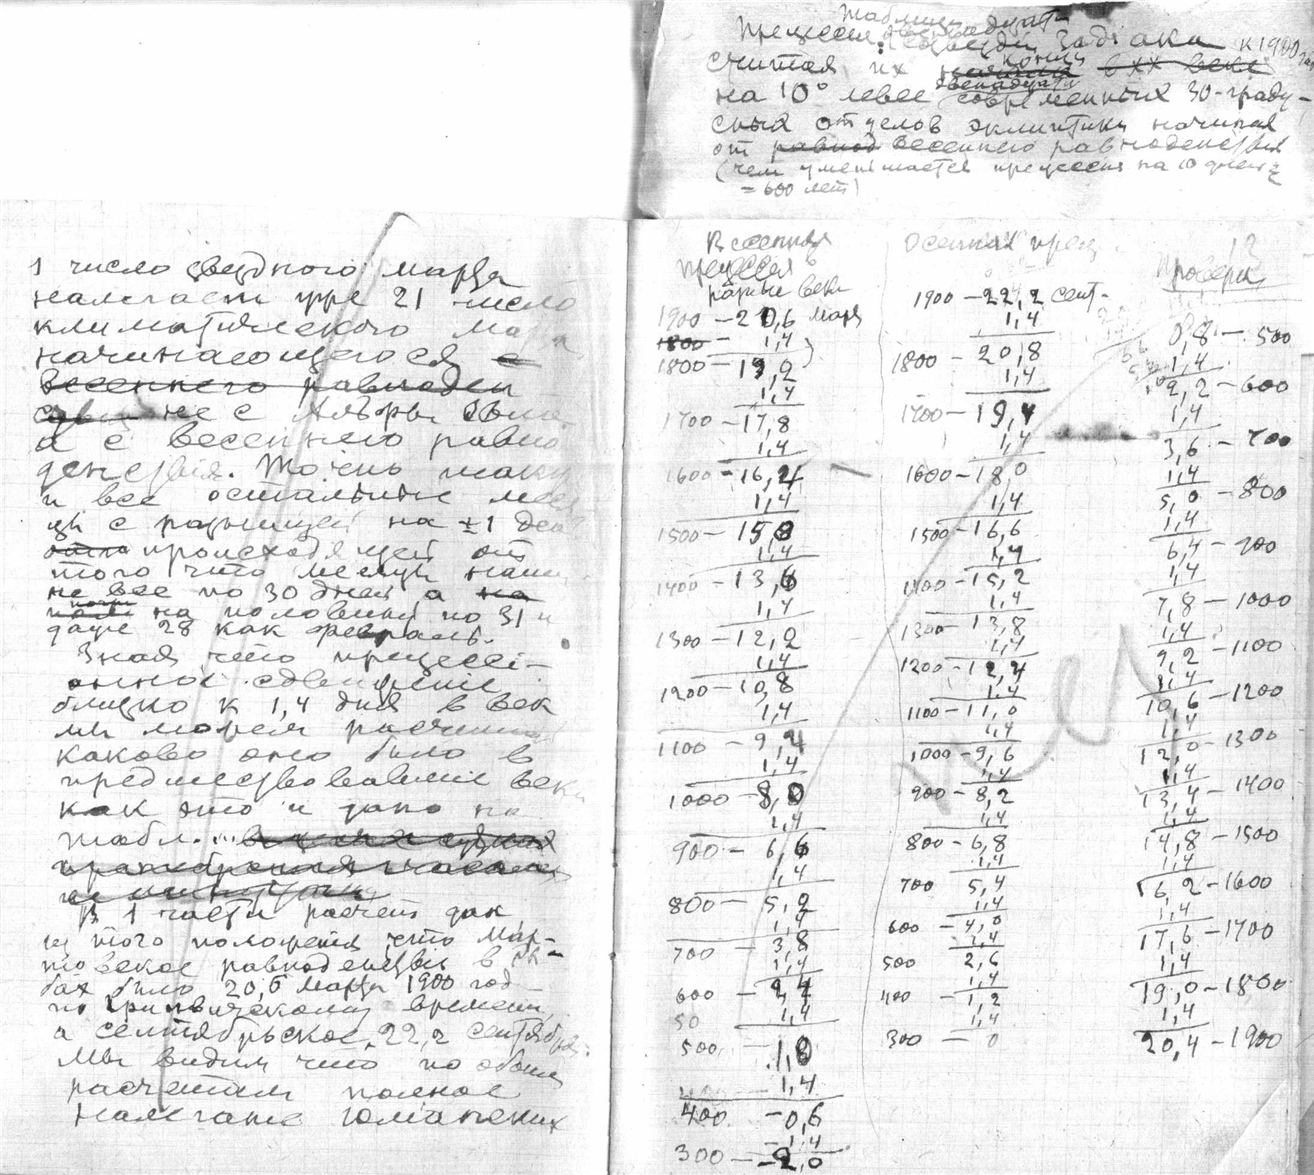 Таблица
Прецессия двенадцати
созвездий Зодиака к 1900
считая их конца начиная в XX веке
на 10° левее двенадцати современных 30-граду-
сных отделов эклиптики начиная
от равнод весеннего равноденствия
(чем уменьшается прецессия на 10 дней
= 600 лет)
1 число звездного марта
налегает уже 21 число
климатического марта
начинающегося с
весеннего равноден
не с
а с весеннего равно
денствия. Точно так
и все остальные меся
цы с разницей на ±1 день
происходящей от
того что месяцы наши
не все по 30 дней а на
почти на половину по 31 и
даже 28 как февраль.
Зная что прецесси-
онное сдвижение
близко к 1,4 дня в век
мы можем расчитать
каково оно было в
предшествовавшие века
как это и дано на
табл. ...
В 1 части расчет дан
из того положения что мар-
товское равноденствие в
было 20,6 марта 1900 год
по гринвичскому времени,
а сентябрьское 22,2 сентября.
Мы видим что по обоим
расчетам полное
налегание
Весенняя
прецессия в
разные века
1900 – 20,6 марта
1800 – 1,4
1800 – 19,2
1,4
1700 – 17,8
1,4
1600 – 16,4
1,4
1500 – 15,0
1,4
1400 – 13,6
1,4
1300 – 12,2
1,4
1200 – 10,8
1,4
1100 – 9,4
1,4
1000 – 8,0
1,4
900 – 6,6
1,4
800 – 5,2
1,4
700 – 3,8
1,4
600 – 2,4
1,4
500 – 1,0
1,4
400 – 0,6
1,4
300 – 2,0
Осенняя прец.
1900 – 22,2 сент.
1,4
1800 – 20,8
1,4
1700 – 19,4
1,4
1600 – 18,0
1,4
1500 – 16,6
1,4
1400 – 15,2
1,4
1300 – 13,8
1,4
1200 – 12,4
1,4
1100 – 11,0
1,4
1000 – 9,6
1,4
900 – 8,2
1,4
800 – 6,8
1,4
700 5,4
1,4
600 – 4,0
1,4
500 2,6
1,4
400 – 1,2
1,4
300 – 0
13
Проверка
0,8 – 500
1,4
2,2 – 600
1,4
3,6 – 700
1,4
5,0 – 800
1,4
6,4 – 900
1,4
7,8 – 1000
1,4
9,2 – 1100
1,4
10,6 – 1200
1,4
12,0 – 1300
1,4
13,4 – 1400
1,4
14,8 – 1500
1,4
16,2 – 1600
1,4
17,6 – 1700
1,4
19,0 – 1800
1,4
20,4 – 1900